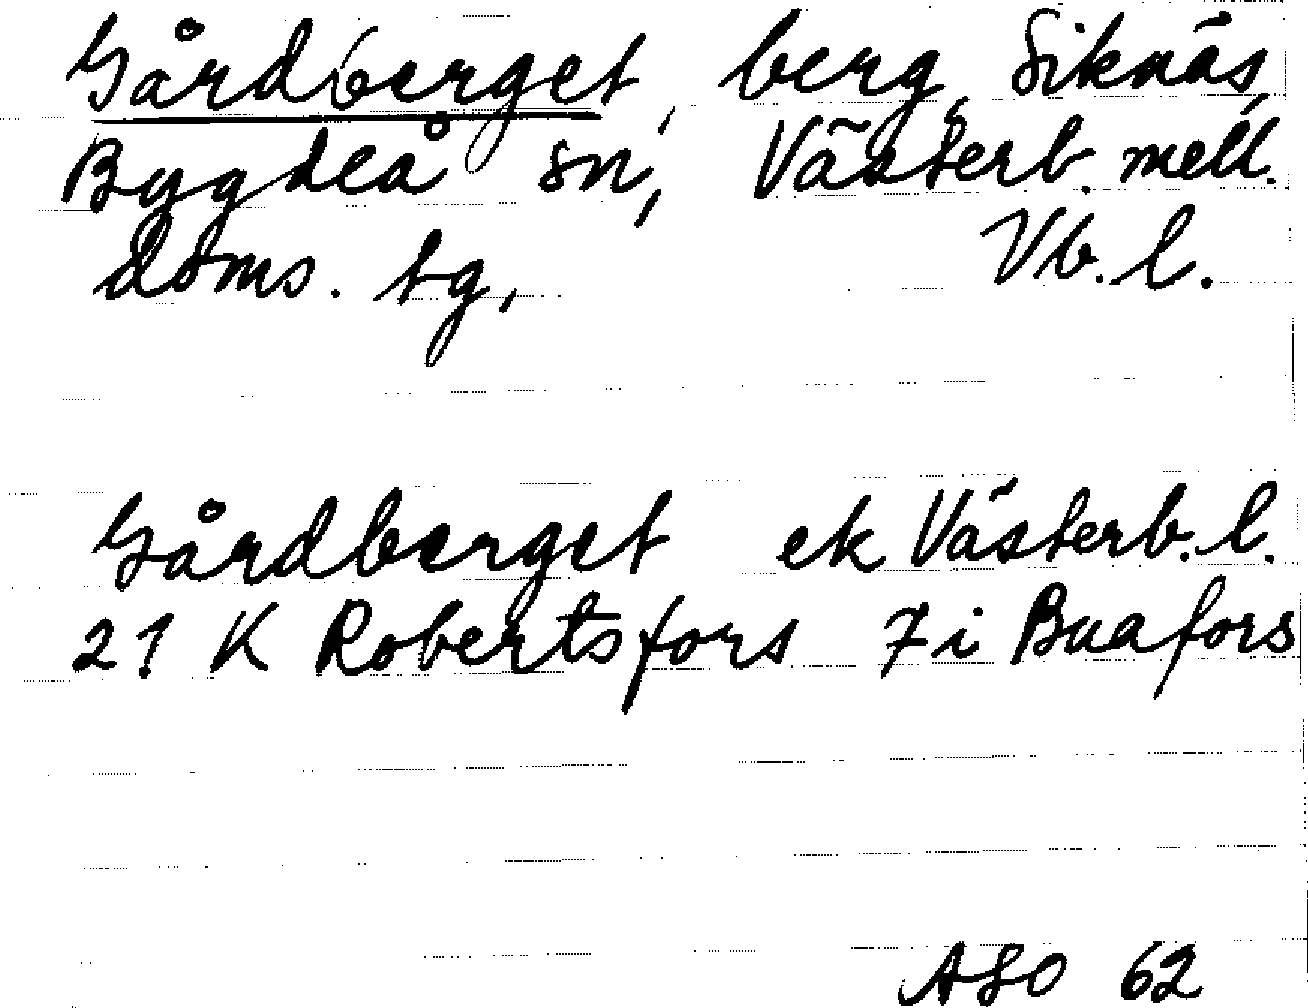 Gårdberget, berg, Siknäs,
Bygdeå sn, Västerb. mell.
doms. tg, Vb. l.
Gårdberget ek Västerb. l.
21 K Robertsfors 7 i Buafors
ASO 62